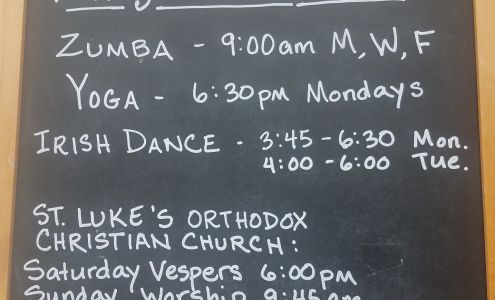 ZUMBA - 9:00am M, W, F
YOGA - 6:30pm Mondays
IRISH DANCE - 3:45-6:30 Mon.
4:00-6:00 Tue.
ST. LUKE'S ORTHODOX
CHRISTIAN CHURCH:
Saturday Vespers 6:00pm
Sunday Worship 9:45am